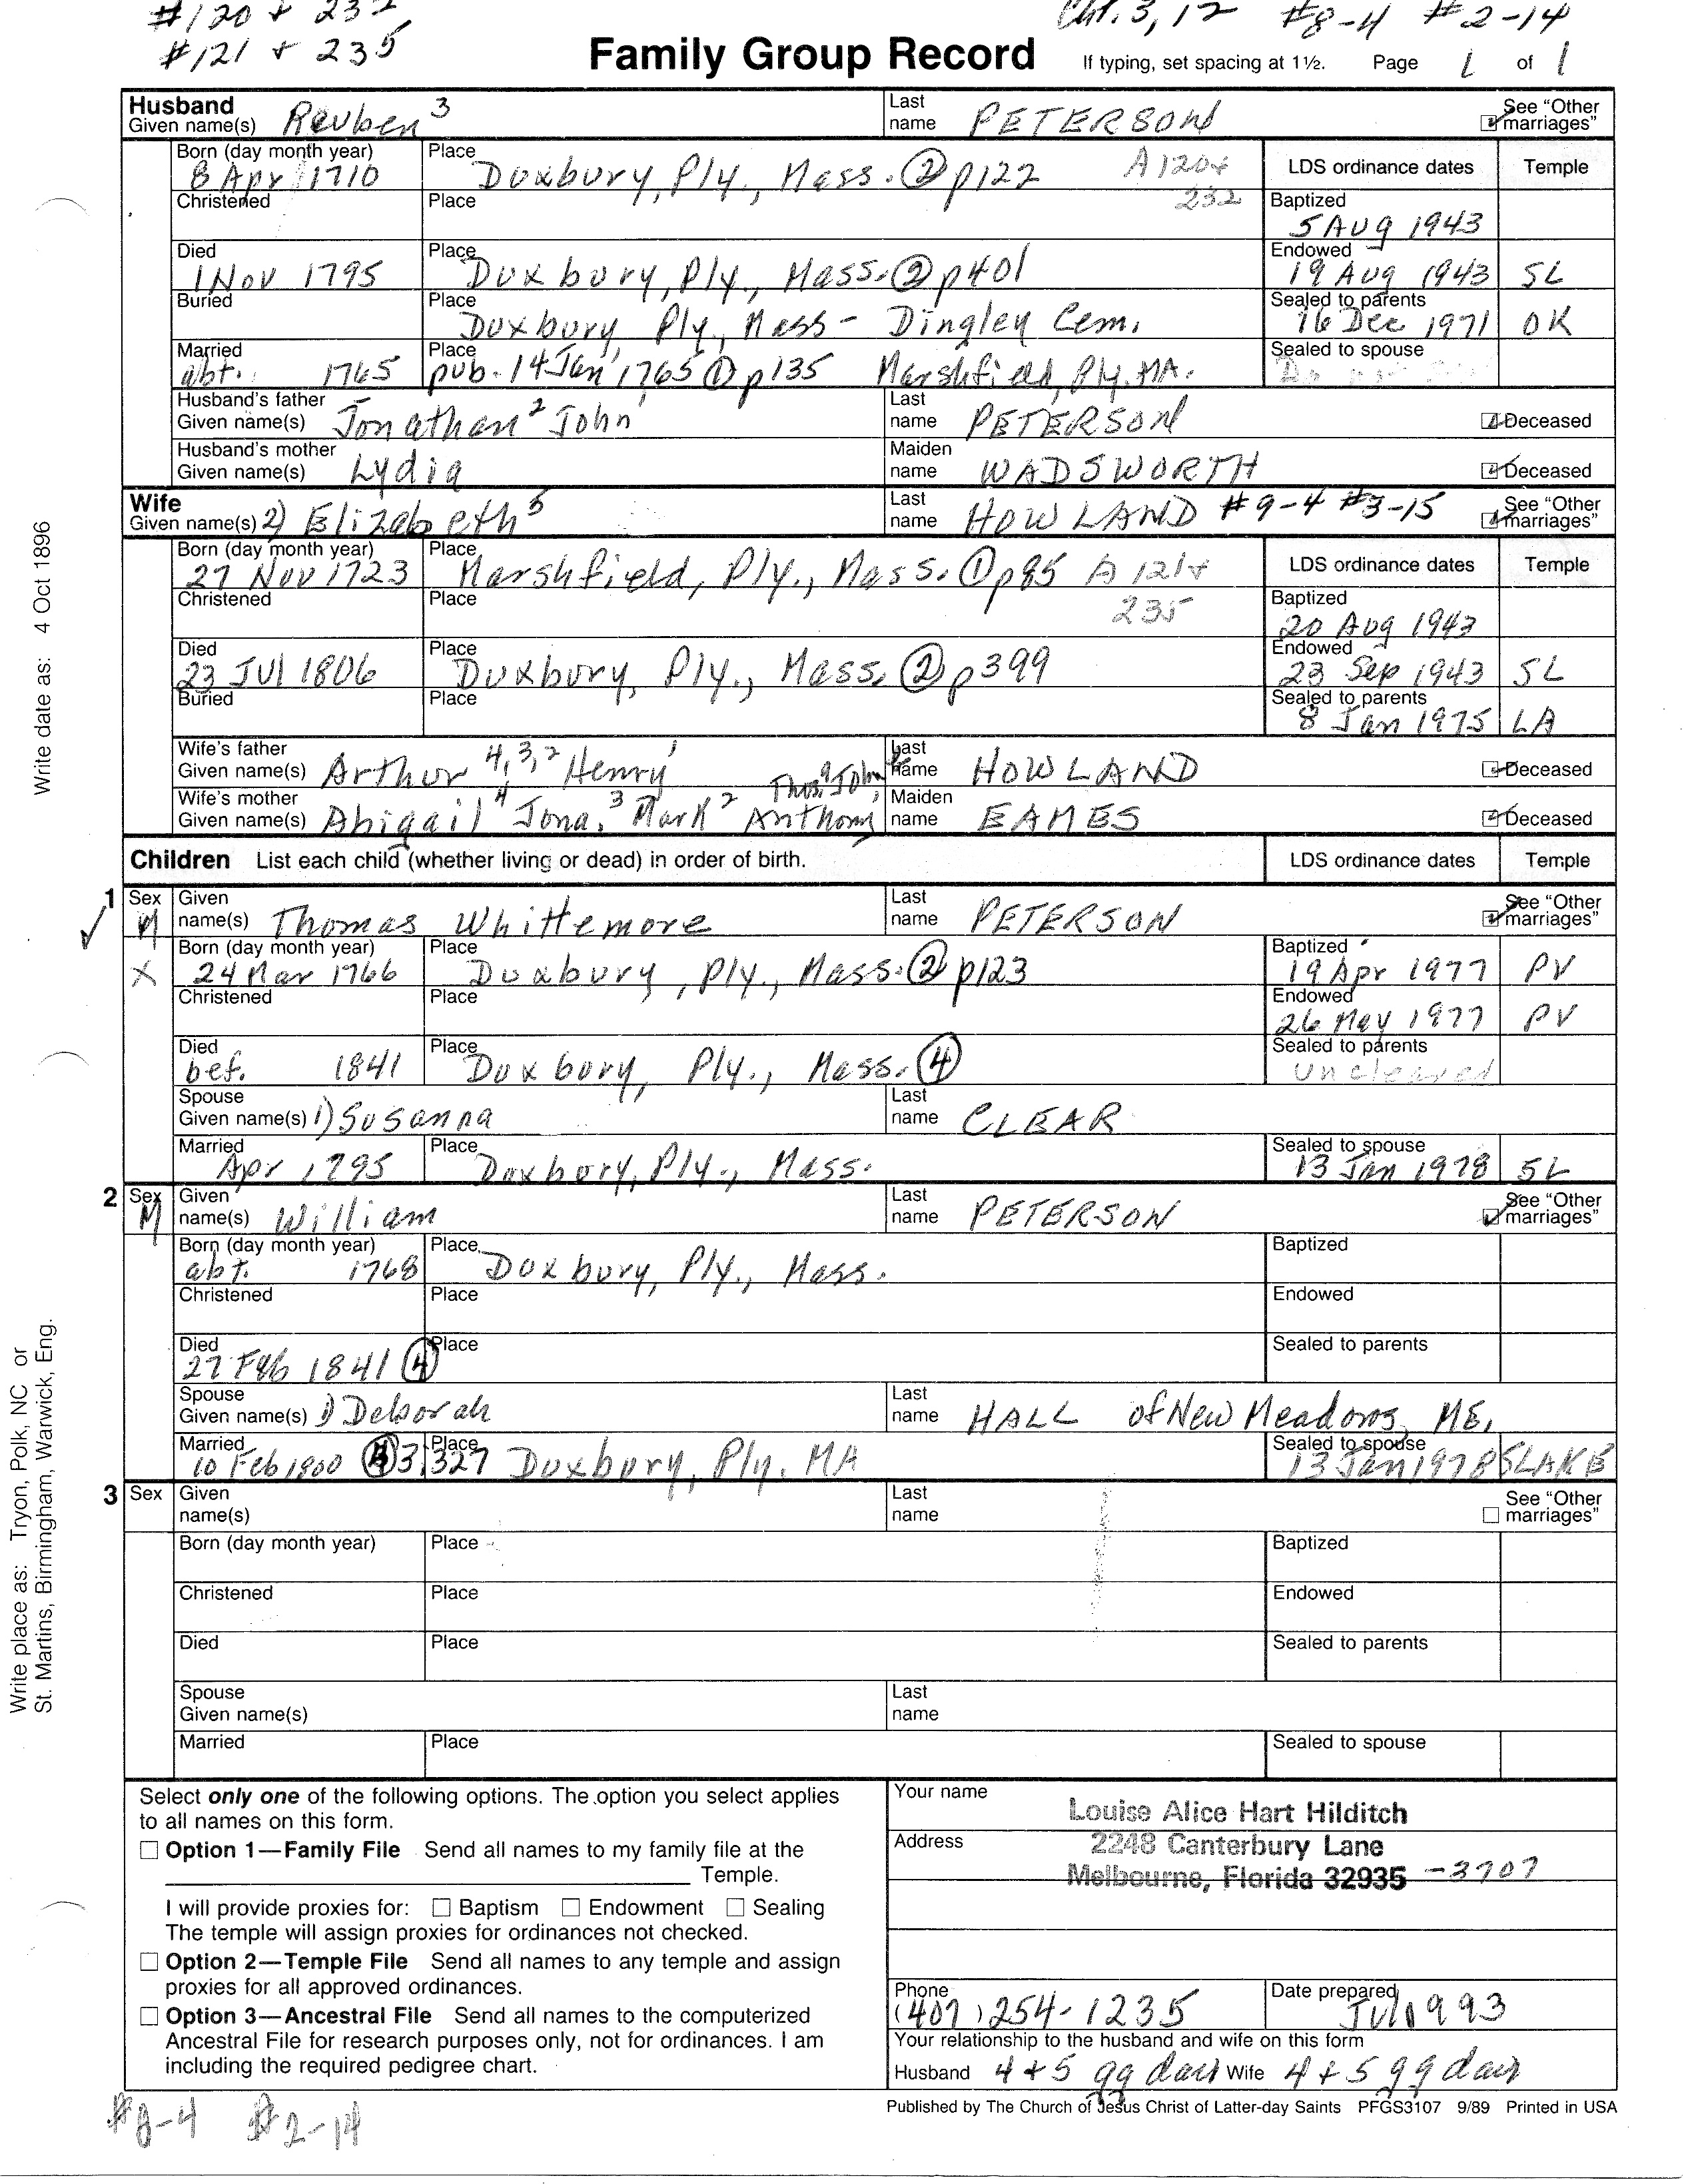 #120 + 232 Cht. 3, 12 #8-4 #2-14
#121 + 235
Family Group Record If typing, set spacing at 1½. Page 1 of 1
Husband
Given name(s) Reuben 3 Last name PETERSON See "Other marriages"
Born (day month year) Place LDS ordinance dates Temple
8 Apr 1710 Duxbury, Ply., Mass. ② p122 A 120+
232
Christened Place Baptized
5 AUg 1943
Died Place Endowed
1 Nov 1795 Duxbury, Ply., Mass. ② p401 19 Aug 1943 SL
Buried Place Sealed to parents
Duxbury Ply., Mass - Dingley Cem. 16 Dec 1971 OK
Married Place Sealed to spouse
abt. 1765 pub. 14 Jan 1765 ① p135 Marshfield, Ply. MA.
Husband's father
Given name(s) Jonathan 2 John 1 Last name PETERSON Deceased
Husband's mother
Given name(s) Lydia Maiden name WADSWORTH Deceased
Wife
Given name(s) 2) Elizabeth 5 Last name HOWLAND #9-4 #3-15 See "Other marriages"
Born (day month year) Place LDS ordinance dates Temple
27 Nov 1723 Marshfield, Ply., Mass. ① p85 A 121+
235
Christened Place Baptized
20 Aug 1943
Died Place Endowed
23 Jul 1806 Duxbury, Ply., Mass. ② p399 23 Sep 1943 SL
Buried Place Sealed to parents
8 Jan 1975 LA
Wife's father
Given name(s) Arthur 4,3,2 Henry 1 Last name HOWLAND Deceased
Wife's mother Thos. John
Given name(s) Abigail 4 Jona. 3 Mark 2 Anthony 1 Maiden name EAMES Deceased
Children List each child (whether living or dead) in order of birth. LDS ordinance dates Temple
1 Sex M Given name(s) Thomas Whittemore Last name PETERSON See "Other marriages"
Born (day month year) Place Baptized
X 24 Mar 1766 Duxbury, Ply., Mass. ② p123 19 Apr 1977 PV
Christened Place Endowed
26 May 1977 PV
Died Place Sealed to parents
bef. 1841 Duxbury, Ply., Mass. ④ Uncleared
Spouse
Given name(s) 1) Susanna Last name CLEAR
Married Place Sealed to spouse
Apr 1795 Duxbury, Ply., Mass. 13 Jan 1978 SL
2 Sex M Given name(s) William Last name PETERSON See "Other marriages"
Born (day month year) Place Baptized
abt. 1768 Duxbury, Ply., Mass.
Christened Place Endowed
Died Place Sealed to parents
27 Feb 1841 ④
Spouse
Given name(s) 1) Deborah Last name HALL of New Meadows, ME.
Married Place Sealed to spouse
10 Feb 1800 3,327 Duxbury, Ply. MA 13 Jan 1978 SLAKE
3 Sex Given name(s) Last name See "Other marriages"
Born (day month year) Place Baptized
Christened Place Endowed
Died Place Sealed to parents
Spouse
Given name(s) Last name
Married Place Sealed to spouse
Select only one of the following options. The option you select applies
to all names on this form.
Option 1—Family File Send all names to my family file at the
Temple.
I will provide proxies for: Baptism Endowment Sealing
The temple will assign proxies for ordinances not checked.
Option 2—Temple File Send all names to any temple and assign
proxies for all approved ordinances.
Option 3—Ancestral File Send all names to the computerized
Ancestral File for research purposes only, not for ordinances. I am
including the required pedigree chart.
Your name
Louise Alice Hart Hilditch
Address 2248 Canterbury Lane
Melbourne, Florida 32935 -3707
Phone Date prepared
(407) 254-1235 Jul 1993
Your relationship to the husband and wife on this form
Husband 4+5 gg dau Wife 4+5 gg dau
Published by The Church of Jesus Christ of Latter-day Saints PFGS3107 9/89 Printed in USA
#8-4 #2-14
Write date as: 4 Oct 1896
Write place as: Tryon, Polk, NC or
St. Martins, Birmingham, Warwick, Eng.